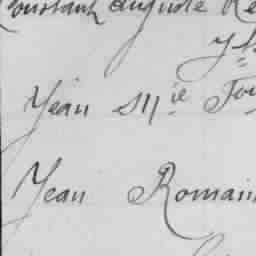 Constant Auguste Re
Jean M ie Tou
Jean Romain